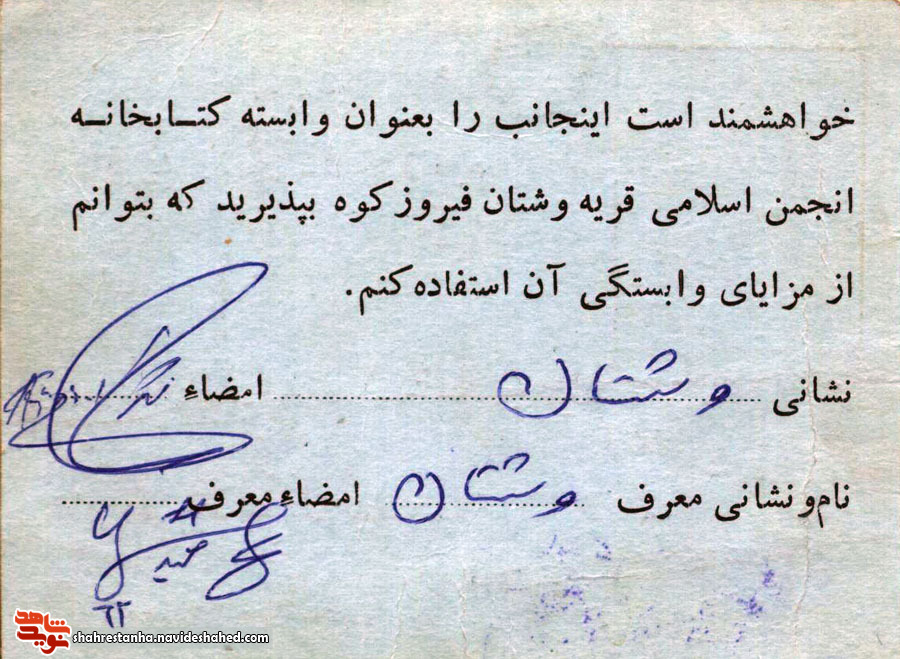 خواهشمند است اینجانب را بعنوان وابسته کتابخانه
انجمن اسلامی قریه وشتان فیروزکوه بپذیرید که بتوانم
از مزایای وابستگی آن استفاده کنم.
نشانی وشتان امضاء
نام و نشانی معرف وشتان امضاء معرف
۶۲
نوید شاهد shahrestanha.navideshahed.com